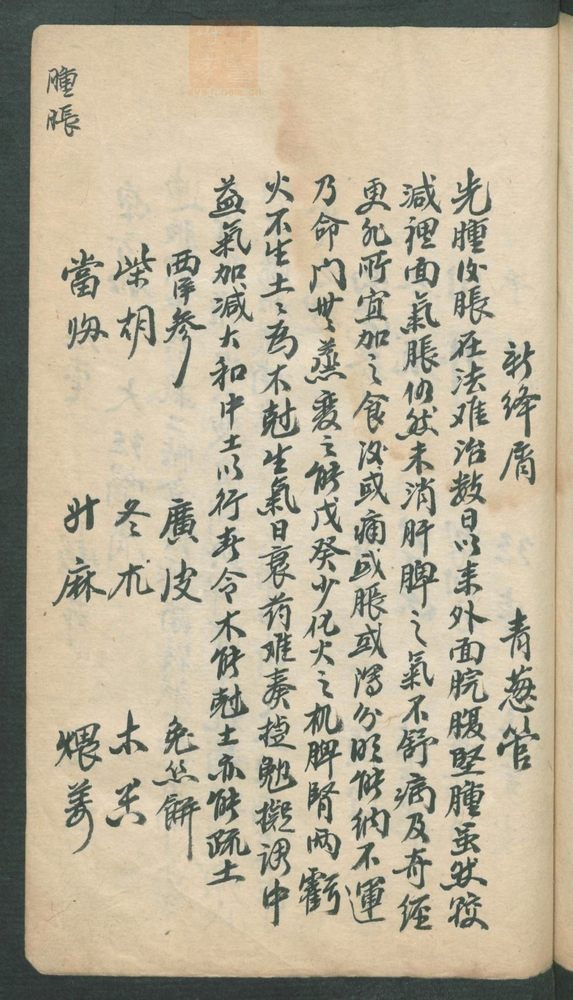 腫脹
新絳屑　青葱管
先腫後脹在法难治数日以来外面脘腹堅腫虽然较
減裡面氣脹仍然未消肝脾之氣不舒病及奇经
更非所宜加之食後或痛或脹或瀉分明能納不運
乃命門無蒸变之能戊癸少化火之机脾腎两虧
火不生土土為木尅生氣日衰药难奏捷勉擬調中
益氣加減大和中土以行春令木能尅土亦能疏土
西洋参　廣皮　兔丝餅
柴胡　冬朮　木香
當归　升麻　煨姜